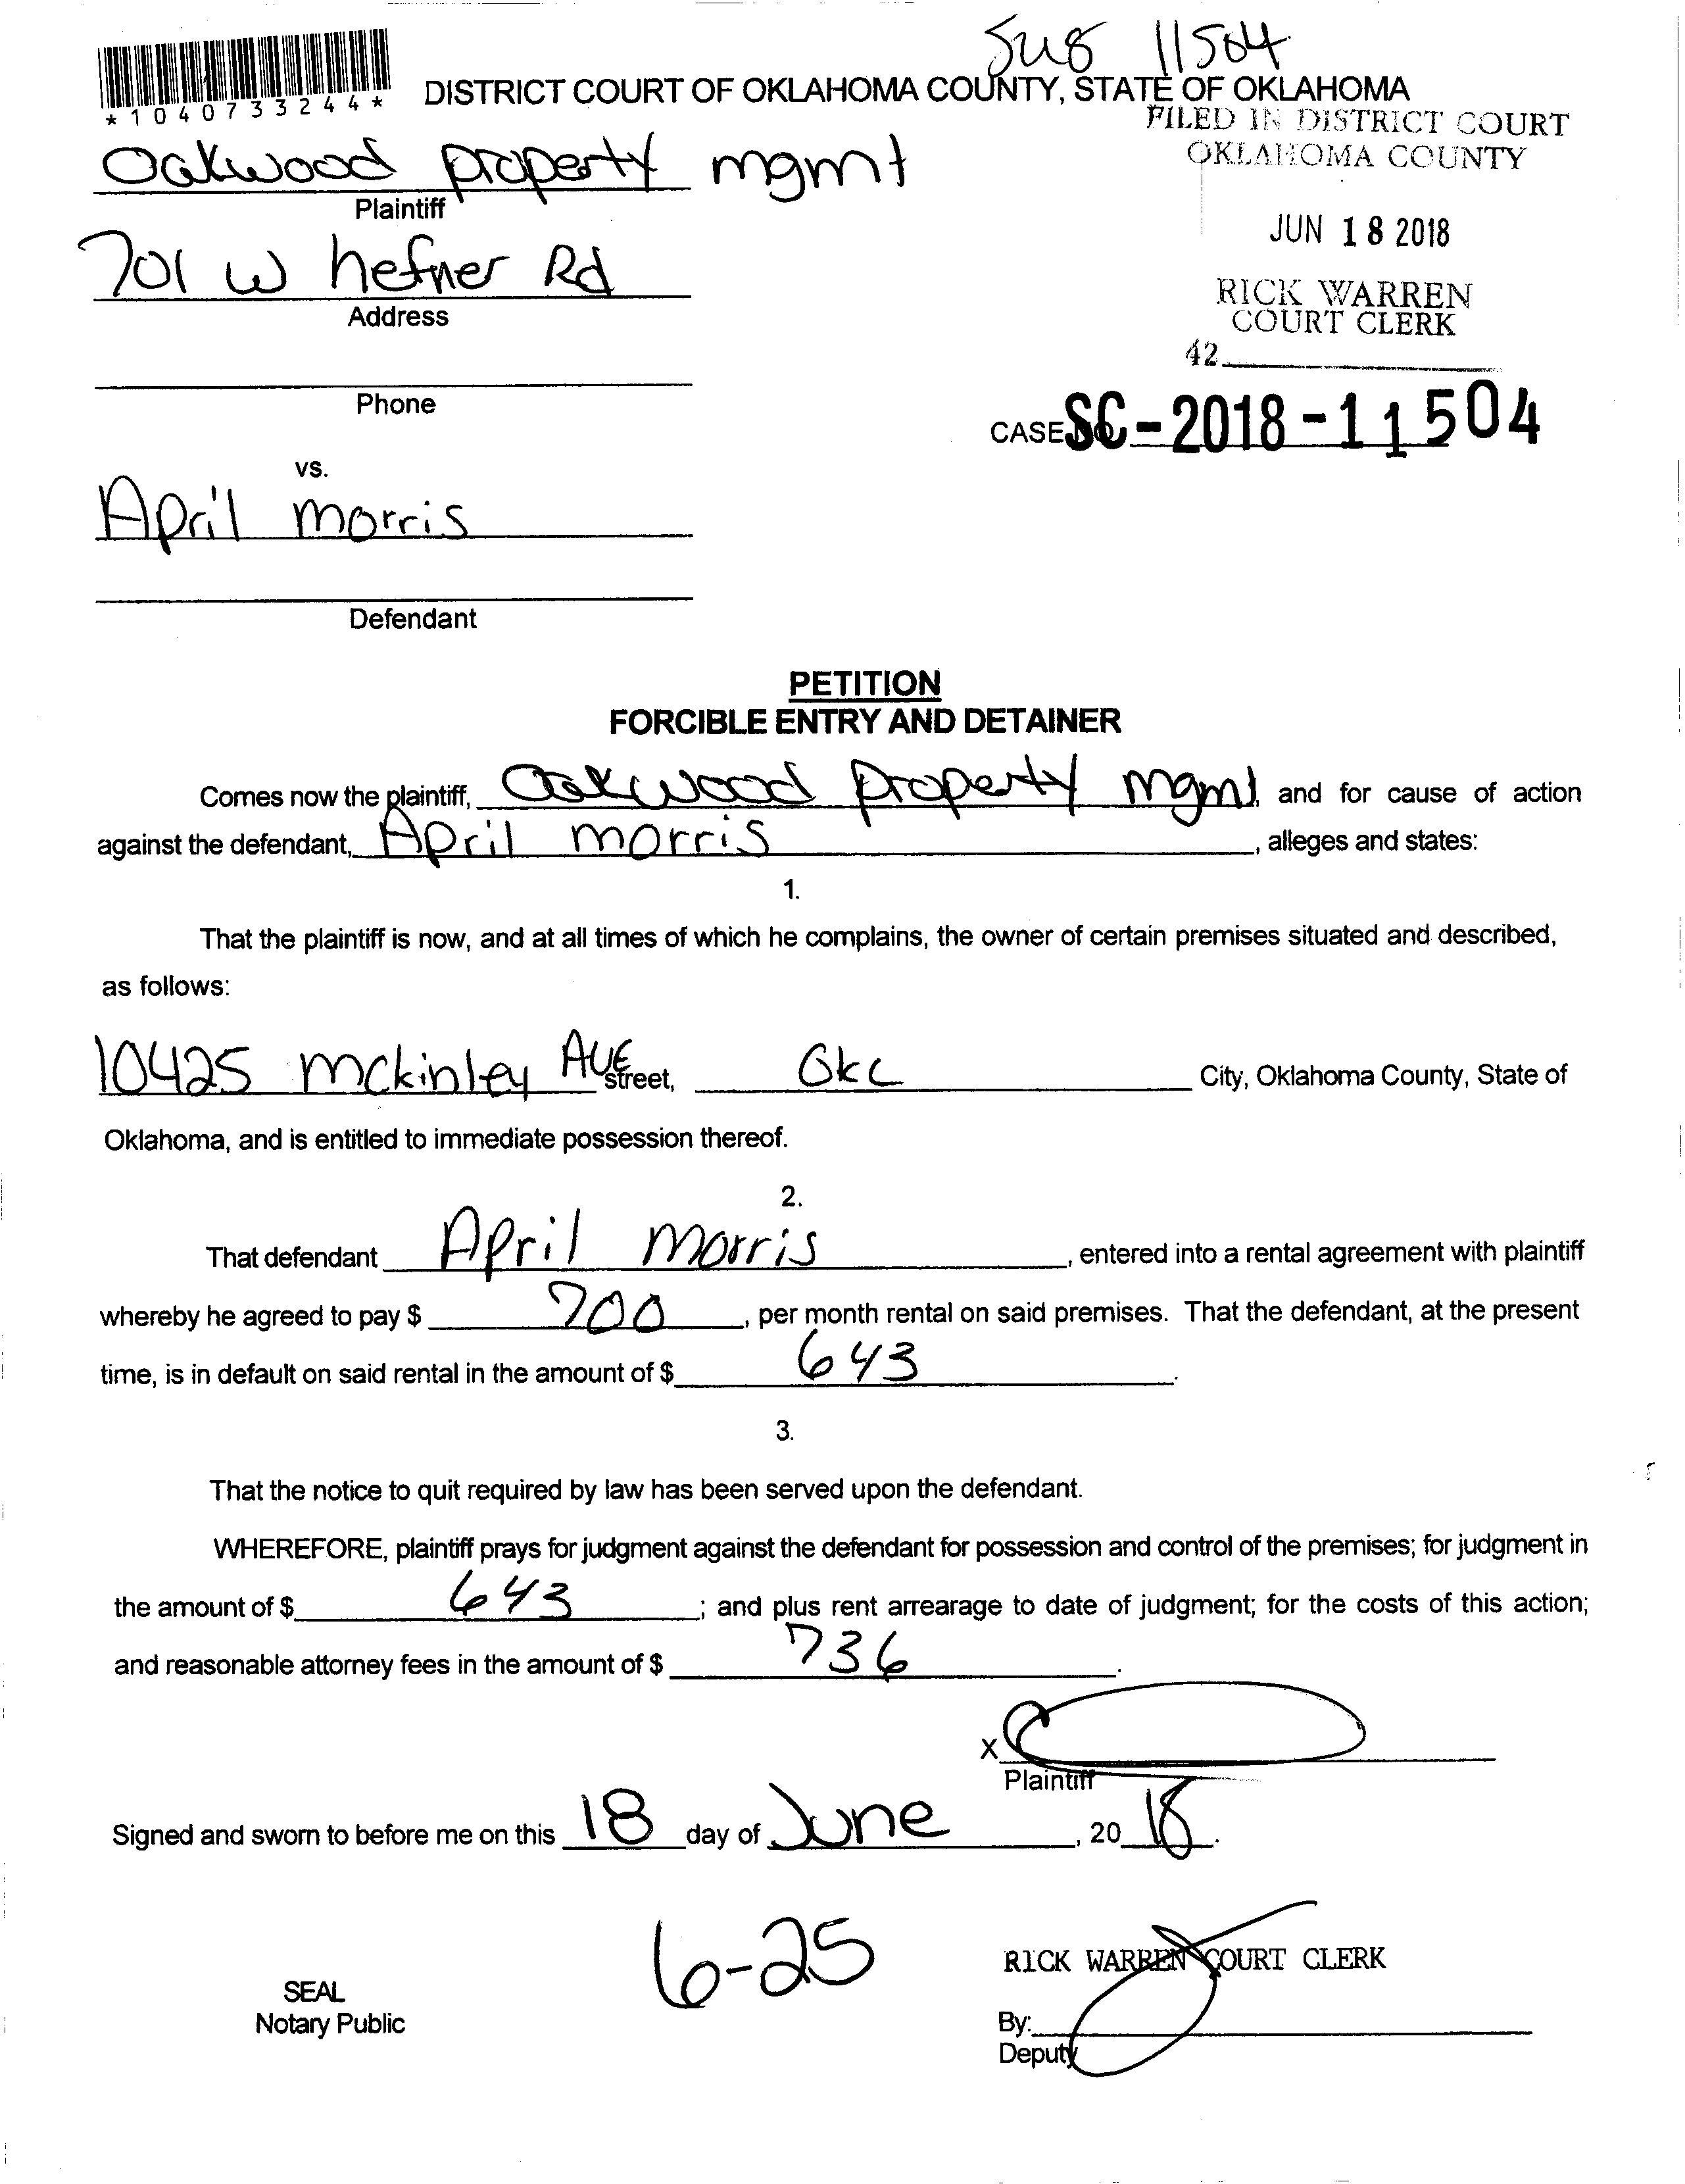 SUB 11504
*1040733244*
DISTRICT COURT OF OKLAHOMA COUNTY, STATE OF OKLAHOMA
FILED IN DISTRICT COURT
OKLAHOMA COUNTY
Oakwood property mgmt
Plaintiff
JUN 18 2018
701 W hefner Rd
Address
RICK WARREN
COURT CLERK
42
Phone
CASE NO. SC-2018-11504
vs.
April morris
Defendant
PETITION
FORCIBLE ENTRY AND DETAINER
Comes now the plaintiff, Oakwood property mgmt, and for cause of action
against the defendant, April morris, alleges and states:
1.
That the plaintiff is now, and at all times of which he complains, the owner of certain premises situated and described,
as follows:
10425 mckinley AvE Street, Okc City, Oklahoma County, State of
Oklahoma, and is entitled to immediate possession thereof.
2.
That defendant April morris, entered into a rental agreement with plaintiff
whereby he agreed to pay $ 700, per month rental on said premises. That the defendant, at the present
time, is in default on said rental in the amount of $ 643.
3.
That the notice to quit required by law has been served upon the defendant.
WHEREFORE, plaintiff prays for judgment against the defendant for possession and control of the premises; for judgment in
the amount of $ 643; and plus rent arrearage to date of judgment; for the costs of this action;
and reasonable attorney fees in the amount of $ 736.
X
Plaintiff
Signed and sworn to before me on this 18 day of June, 20 18.
6-25
RICK WARREN COURT CLERK
SEAL
Notary Public
By:
Deputy